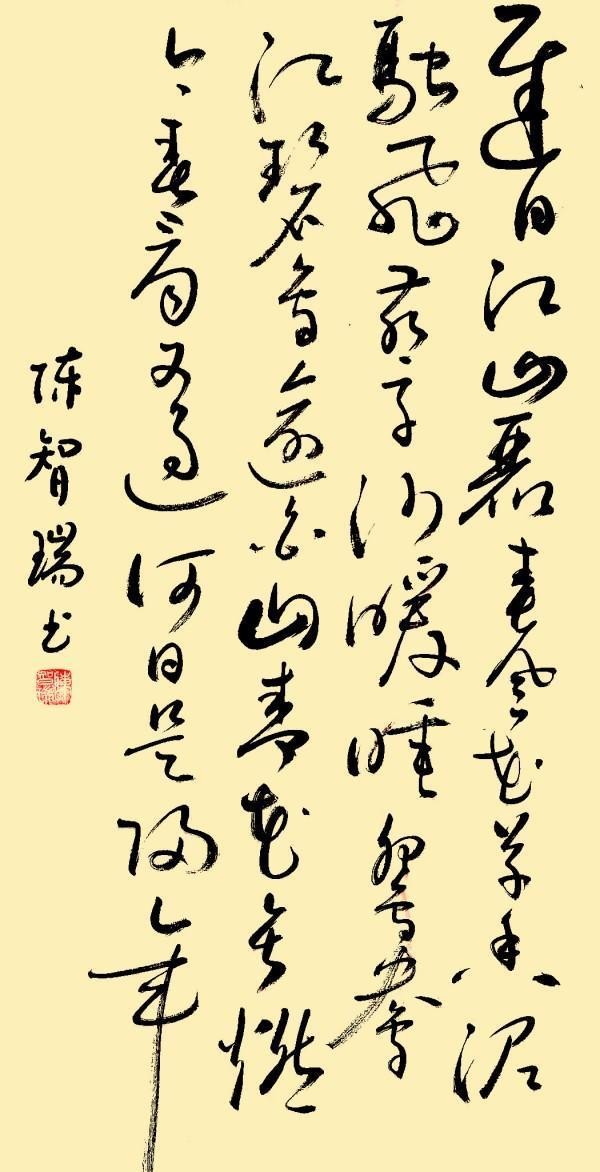 遲日江山麗春風花草香泥
融飛燕子沙暖睡鴛鴦
江碧鳥逾白山青花欲燃
今春看又過何日是歸年
陈智瑞书